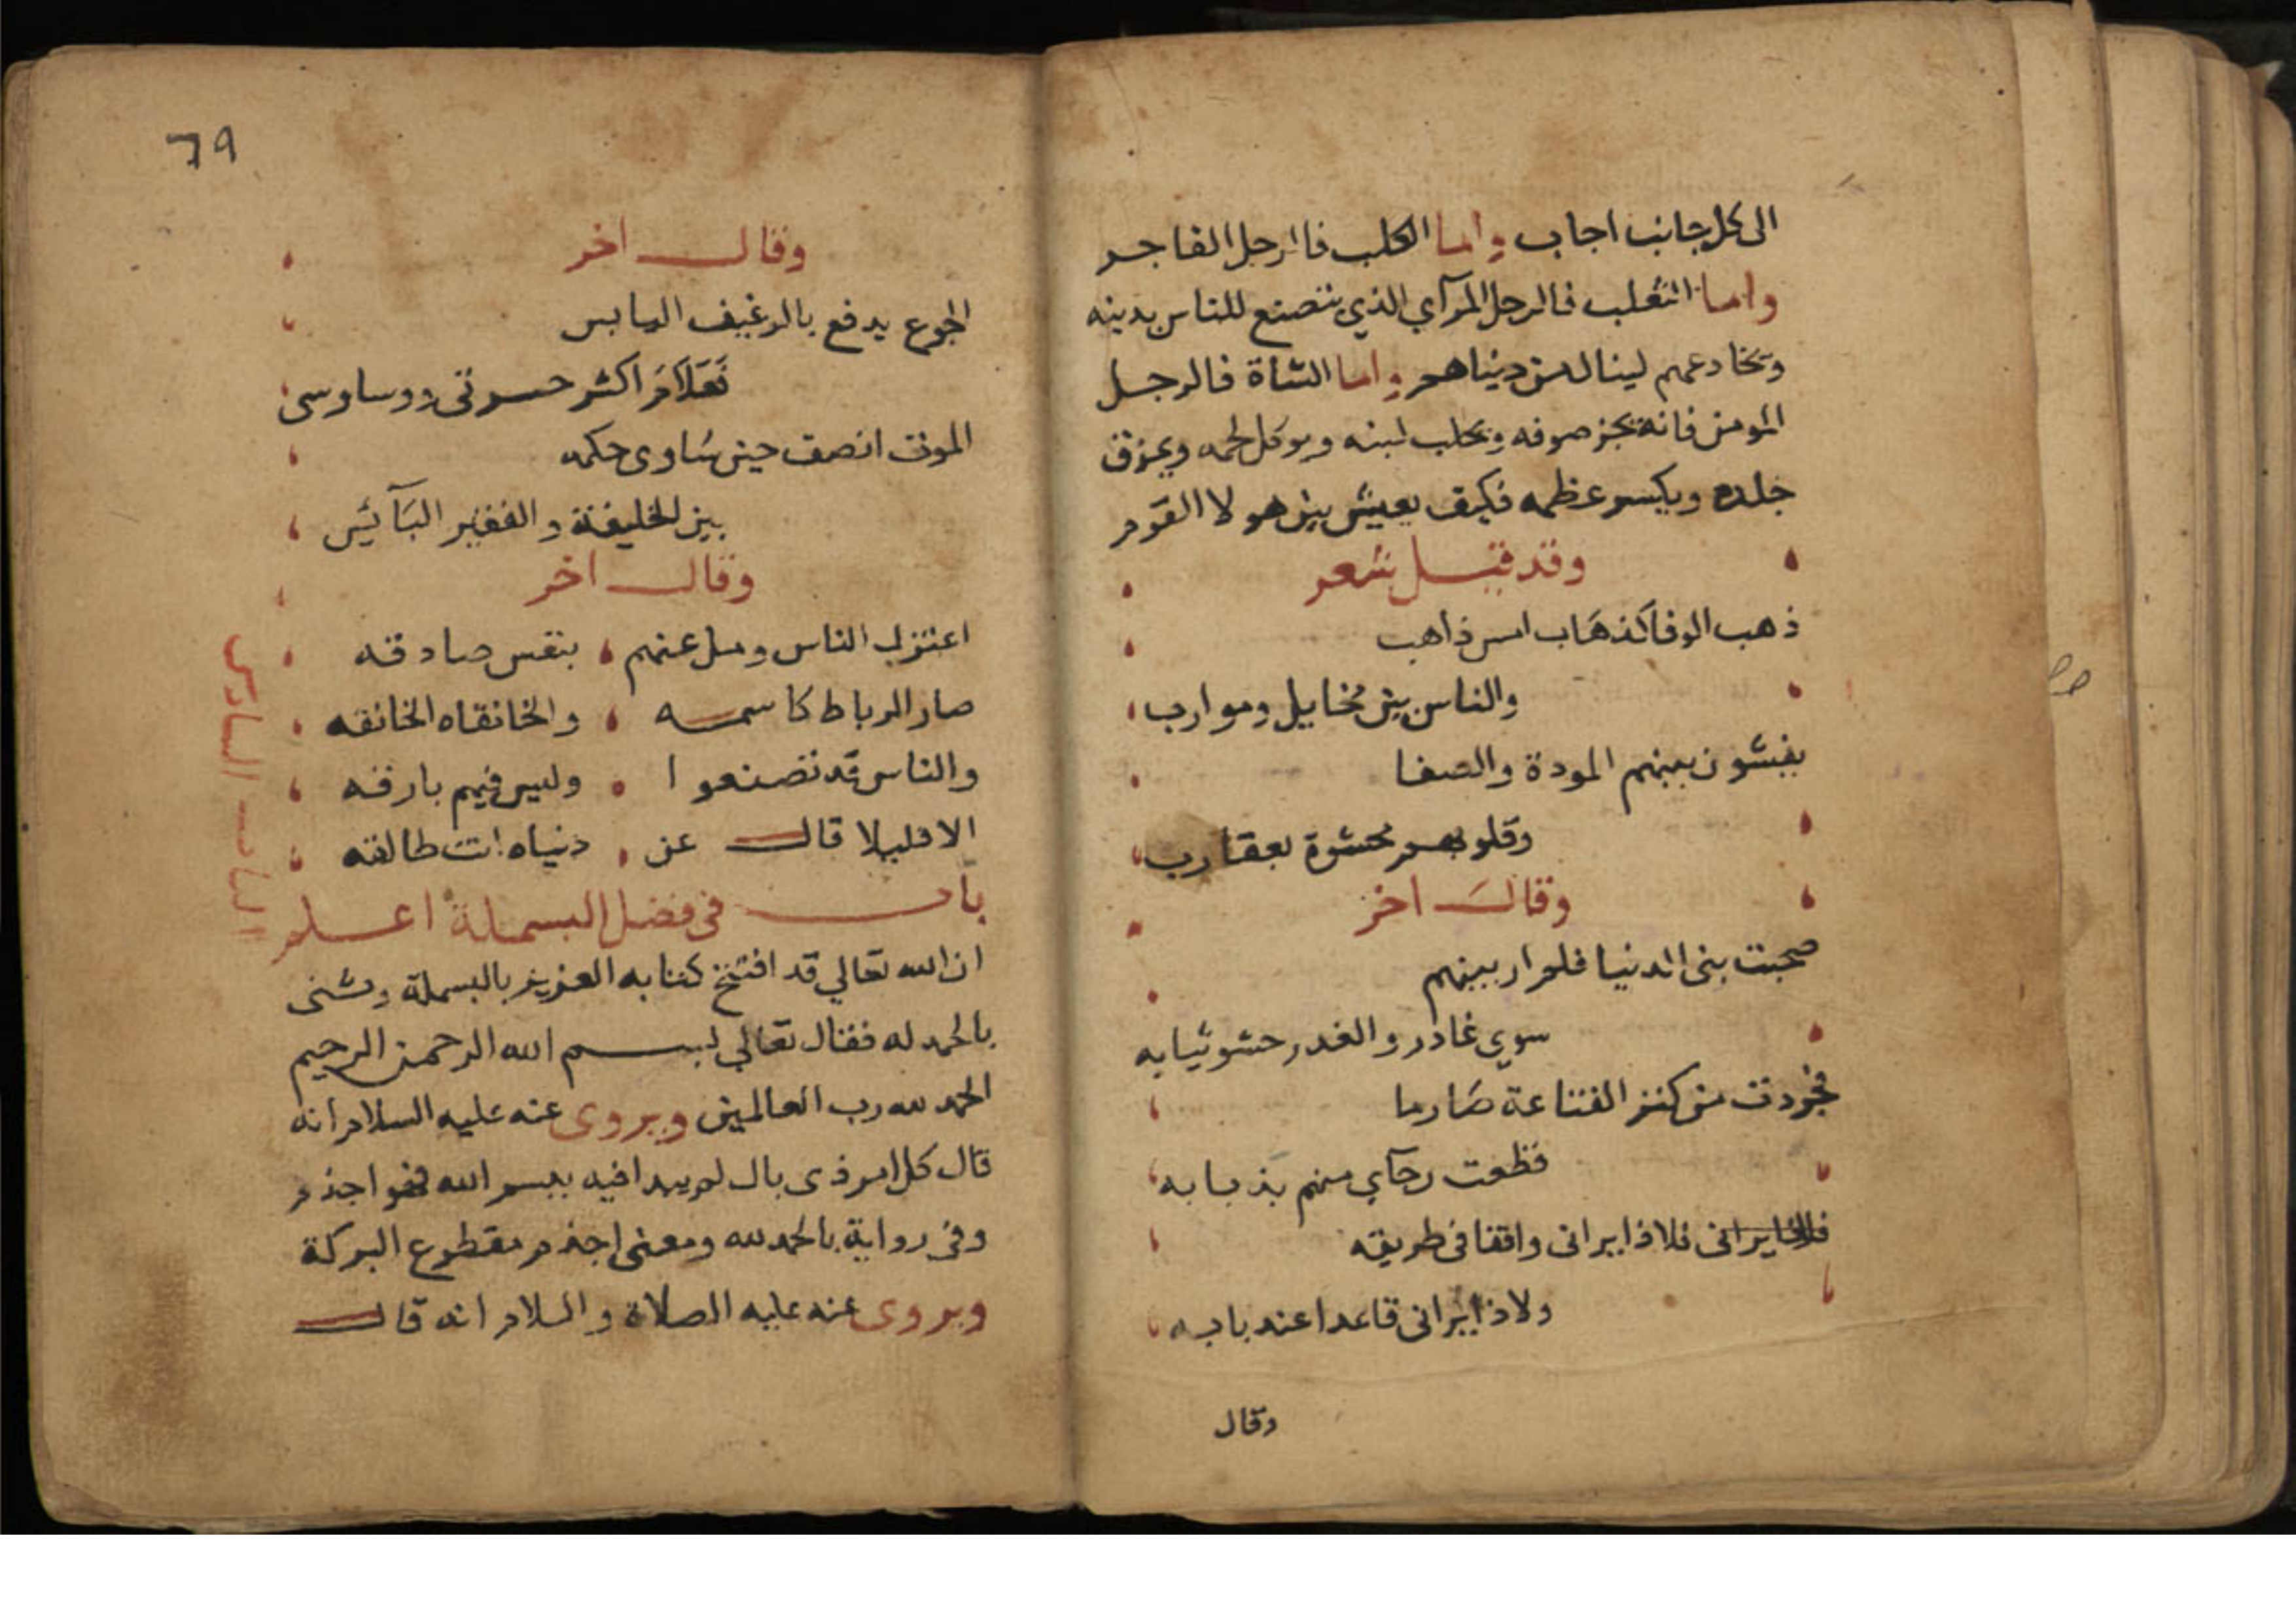 الى كل جانب اجاب واما الكلب فاارجل الفاجر
واما الثعلب فالرجل المرآي الذي يتصنع للناس بدينه
ويخادعهم لينال من دنياهم واما الشاة فالرجل
المومن فانه يجز صوفه ويحلب لبنه ويوكل لحمه ويمزق
جلده ويكسر عظمه فكيف يعيش بين هولا القوم
وقد قيل شعر
ذهب الوفا كذهاب امس ذاهب
والناس بين مخايل وموارب
يفشون بينهم المودة والصفا
وقلوبهم محشوة بعقارب
وقال اخر
صحبت بنى الدنيا فلم ار بينهم
سوي غادر والغدر حشو ثيابه
فجردت من كنز القناعة صارما
قطعت رجآي منهم بذبابه
فلاذا يرانى واقفا فى طريقه
ولا ذا يرانى قاعدا عند بابه
وقال
٦٩
وقال اخر
الجوع يدفع بالرغيف اليابس
فعلام اكثر حسرتى ووساوسى
الموت انصف حين ساوى حكمه
بين الخليفة والفقير البآئس
وقال اخر
اعتزل الناس ومل عنهم بنفس صادقه
صار الرباط كاسمه والخانقاه الخانقه
والناس قد تصنعوا وليس فيهم بارقه
الا قليلا قال عن دنياه انت طالقه
باب فى فضل البسملة اعلم
ان الله تعالي قد افتتح كتابه العزيز بالبسملة وثنى
بالحمد له فقال تعالي بسم الله الرحمن الرحيم
الحمد لله رب العالمين ويروى عنه عليه السلام انه
قال كل امر ذى بال لم يبدا فيه ببسم الله فهو اجذم
وفى رواية بالحمد لله ومعنى اجذم مقطوع البركة
ويروى عنه عليه الصلاة والسلام انه قال
الباب السادس